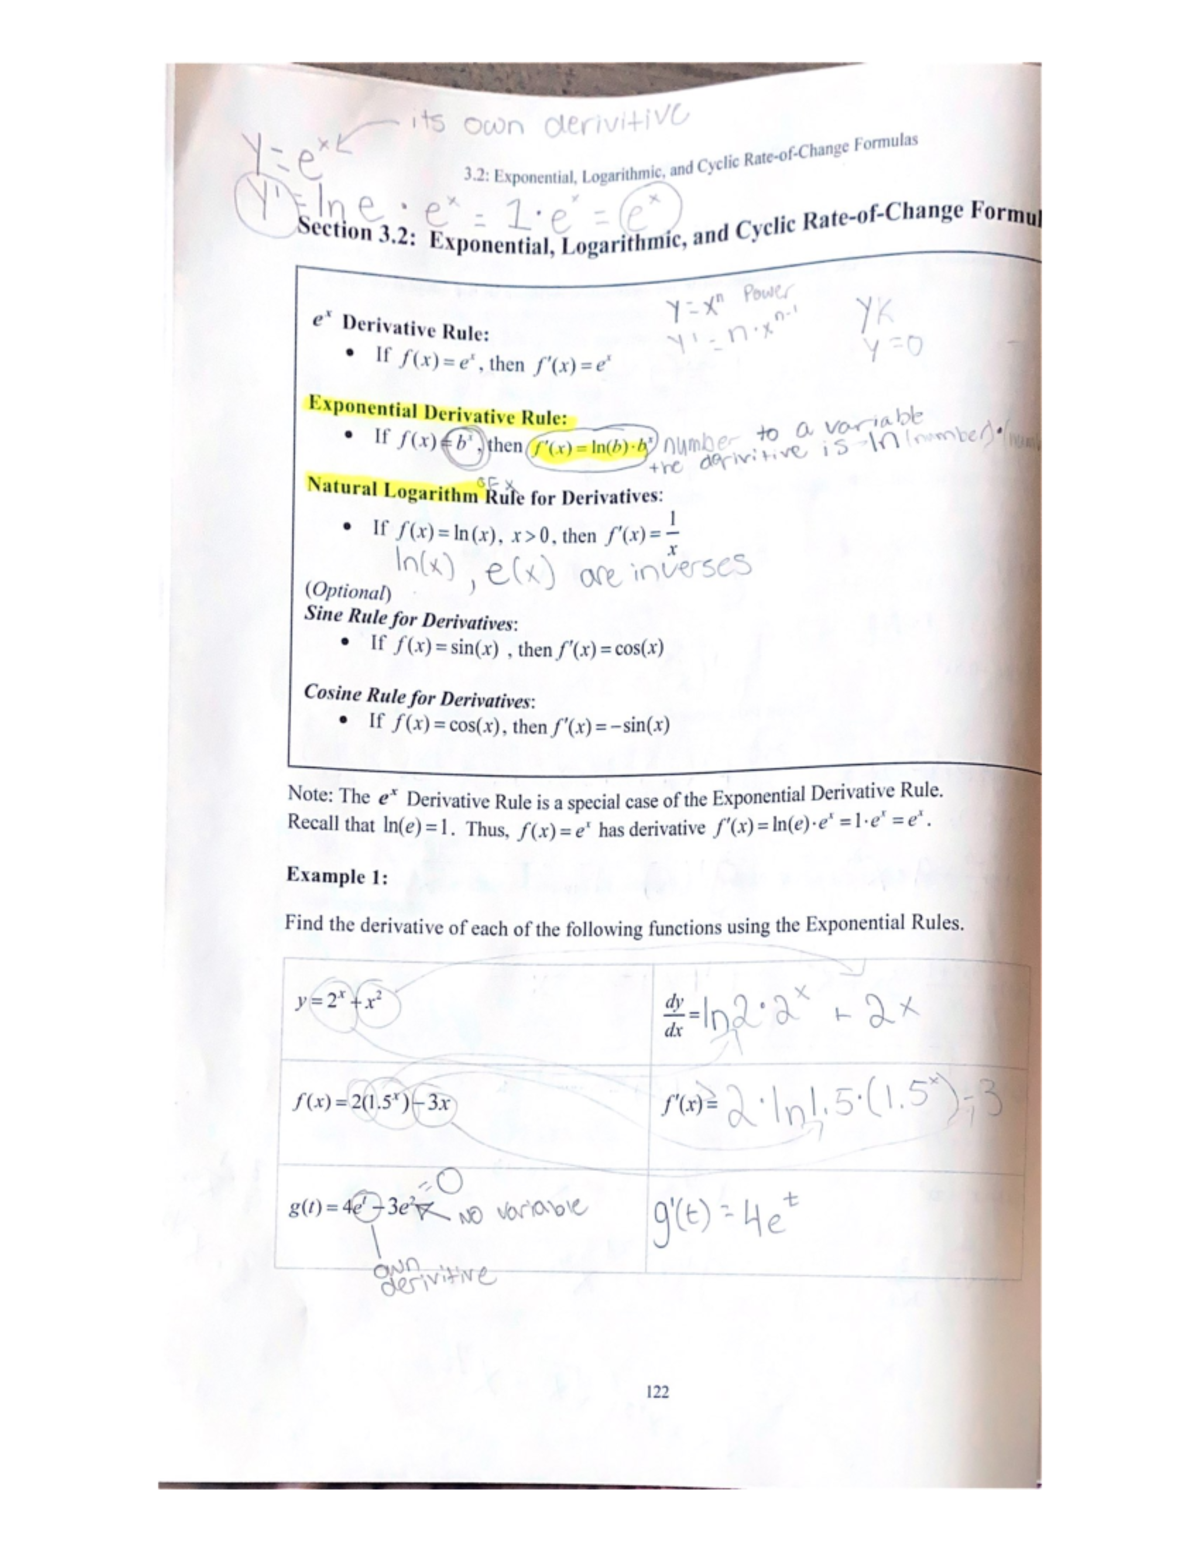 its own derivitive
y = eˣ
3.2: Exponential, Logarithmic, and Cyclic Rate-of-Change Formulas
y' = ln e · eˣ = 1 · eˣ = eˣ
Section 3.2: Exponential, Logarithmic, and Cyclic Rate-of-Change Formul
y = xⁿ Power
y' = n · xⁿ⁻¹
yK
y = 0
eˣ Derivative Rule:
• If f(x) = eˣ, then f'(x) = eˣ
Exponential Derivative Rule:
• If f(x) = bˣ, then f'(x) = ln(b)·bˣ
number to a variable
the derivitive is ln(number)·(num
of x
Natural Logarithm Rule for Derivatives:
• If f(x) = ln(x), x > 0, then f'(x) = 1/x
ln(x), e(x) are inverses
(Optional)
Sine Rule for Derivatives:
• If f(x) = sin(x) , then f'(x) = cos(x)
Cosine Rule for Derivatives:
• If f(x) = cos(x), then f'(x) = −sin(x)
Note: The eˣ Derivative Rule is a special case of the Exponential Derivative Rule.
Recall that ln(e) = 1. Thus, f(x) = eˣ has derivative f'(x) = ln(e)·eˣ = 1·eˣ = eˣ.
Example 1:
Find the derivative of each of the following functions using the Exponential Rules.
y = 2ˣ + x²
dy/dx = ln2 · 2ˣ + 2x
f(x) = 2(1.5ˣ) − 3x
f'(x) = 2 · ln1.5 · (1.5ˣ) − 3
= 0
g(t) = 4eᵗ − 3e² NO variable
g'(t) = 4eᵗ
own
derivitive
122